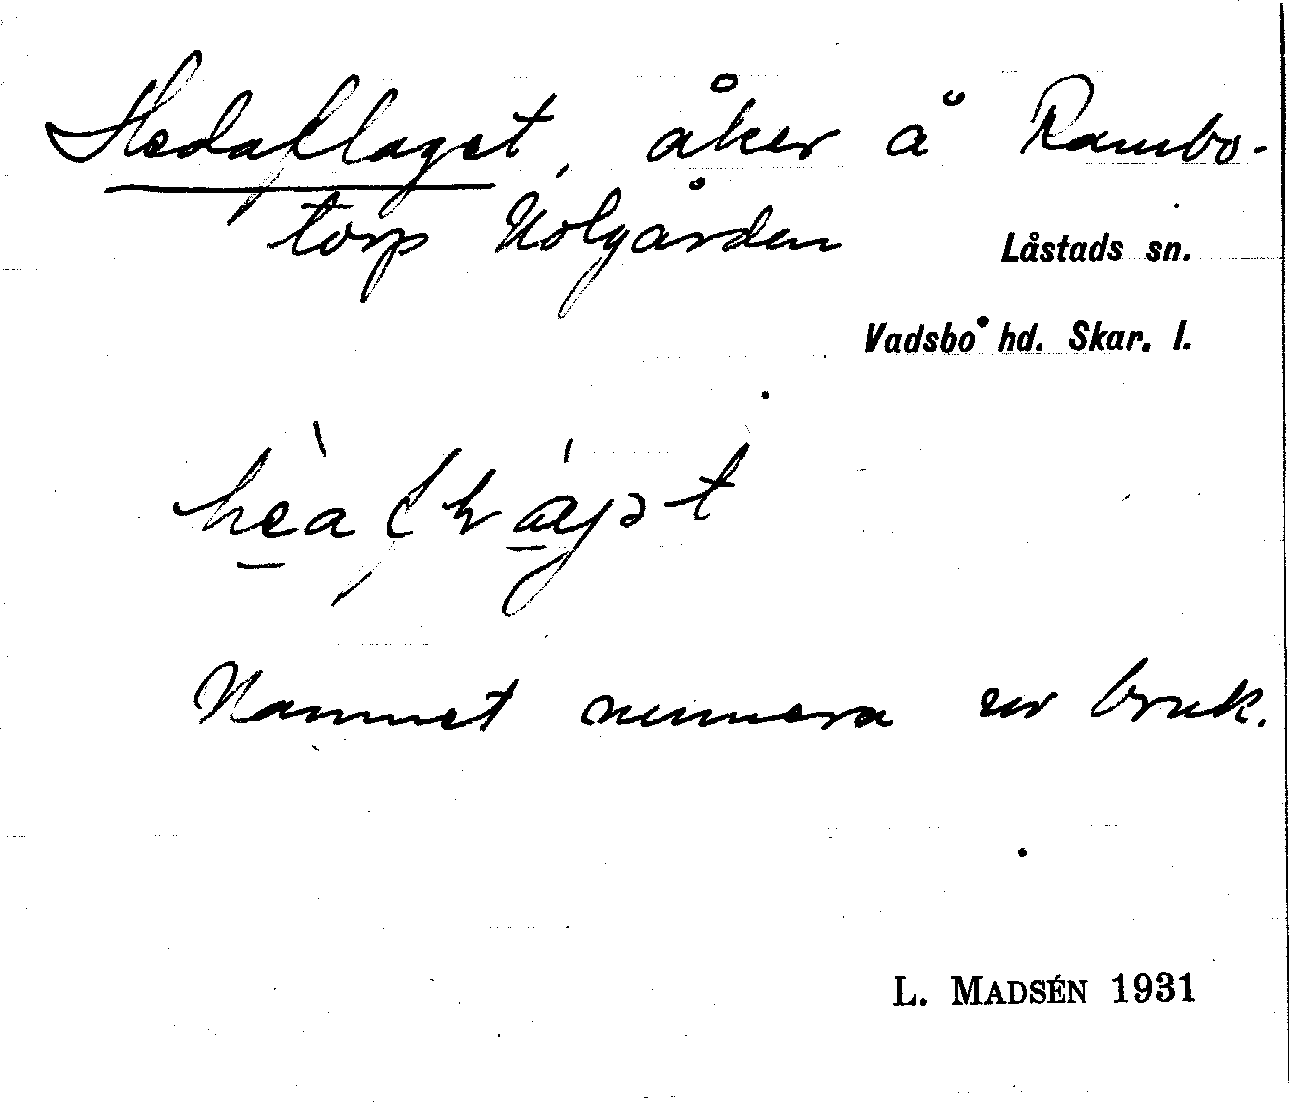 Hedaflaget, åker å Rambo-
torp Nolgården
Låstads sn.
Vadsbo hd. Skar. l.
Namnet numera ur bruk.
L. MADSÉN 1931